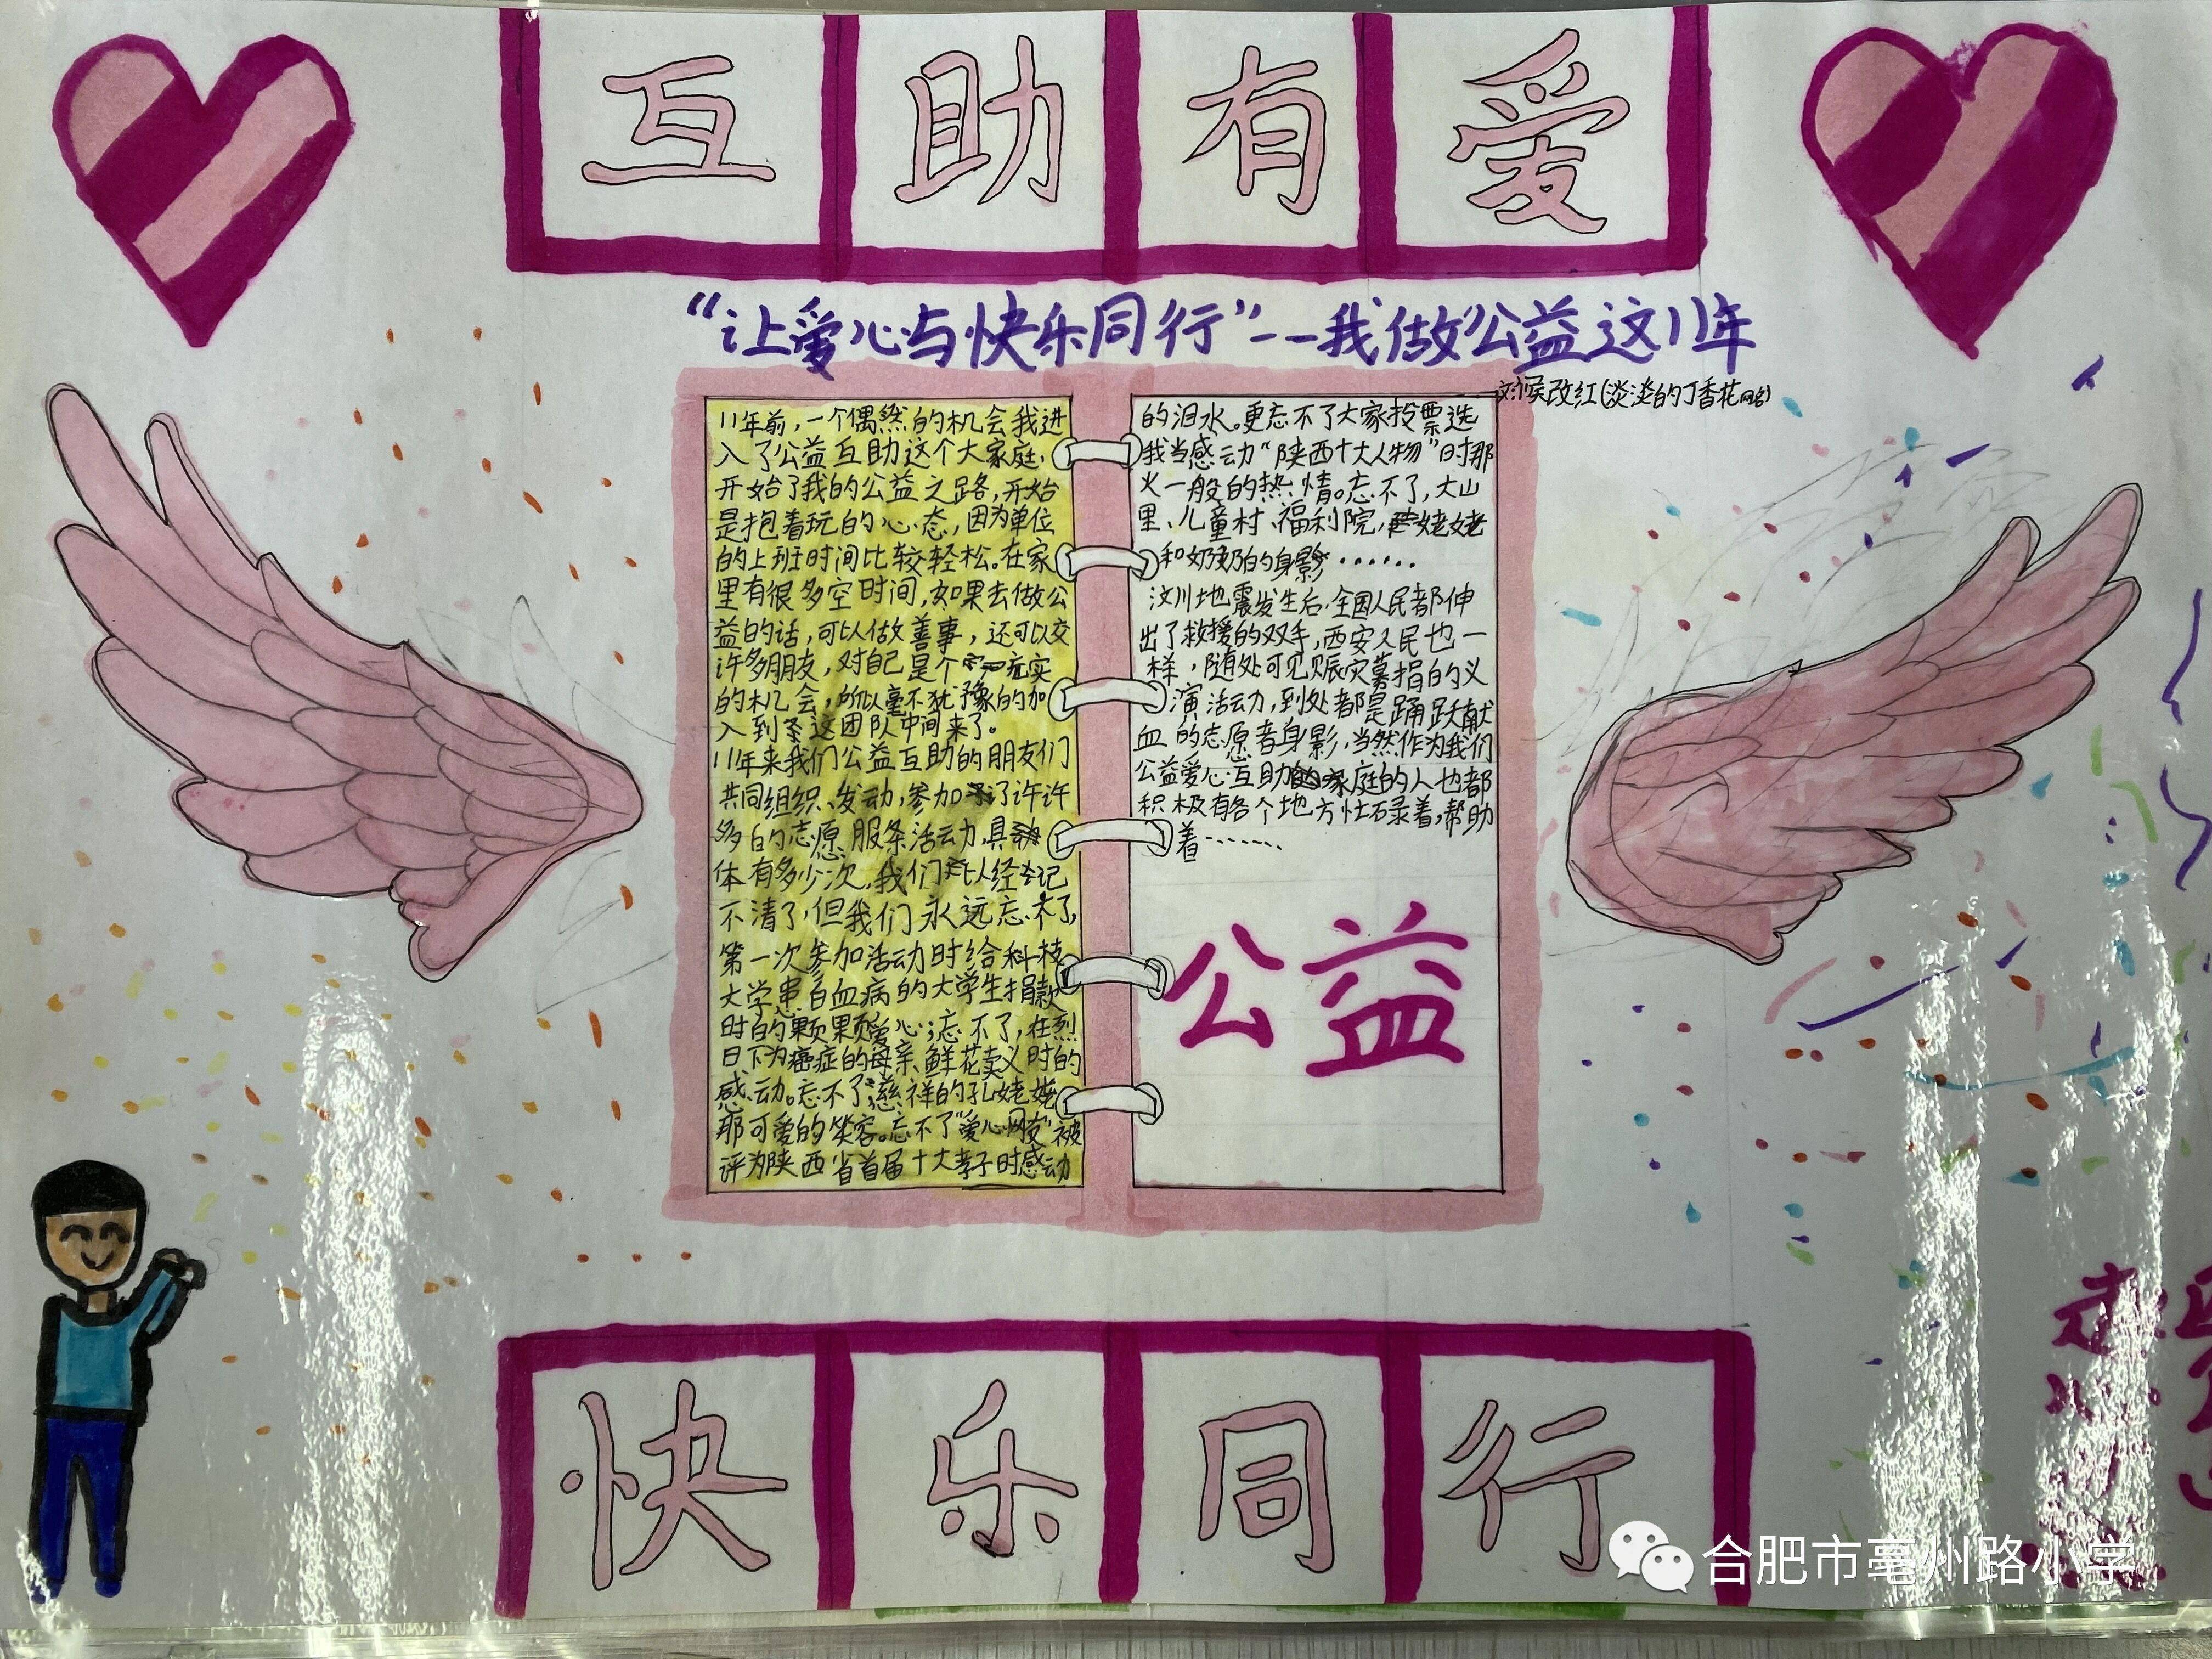 互助有爱
“让爱心与快乐同行”--我做公益这11年
文:候改红(淡淡的丁香花网名)
11年前,一个偶然的机会我进
入了公益互助这个大家庭,
开始了我的公益之路,开始
是抱着玩的心态,因为单位
的上班时间比较轻松。在家
里有很多空时间,如果去做公
益的话,可以做善事,还可以交
许多朋友,对自己是个充实
的机会,所以毫不犹豫的加
入到这团队中间来了。
11年来我们公益互助的朋友们
共同组织、发动,参加了许许
多多的志愿服务活动,具
体有多少次,我们已经记
不清了,但我们永远忘不了,
第一次参加活动时给科技
大学患白血病的大学生捐款
时的颗颗爱心;忘不了,在烈
日下为癌症的母亲鲜花卖义时的
感动。忘不了慈祥的孔姥姥
那可爱的笑容。忘不了“爱心网友”被
评为陕西省首届十大孝子时感动
的泪水。更忘不了大家投票选
我当感动“陕西十大人物”时那
火一般的热情。忘不了,大山
里、儿童村、福利院,姥姥
和奶奶的身影······
汶川地震发生后,全国人民都伸
出了救援的双手,西安人民也一
样,随处可见赈灾募捐的义
演活动,到处都是踊跃献
血的志愿者身影,当然作为我们
公益爱心互助家庭的人也都
积极有各个地方忙碌着,帮助
着······
公益
快乐同行
合肥市亳州路小学